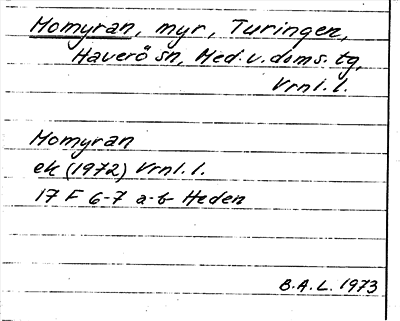 Momyran, myr, Turingen,
Haverö sn, Med. v. doms. tg,
Vrnl. l.
Momyran
ek (1972) Vrnl. l.
17 F 6-7 a-b Heden
B.A.L. 1973